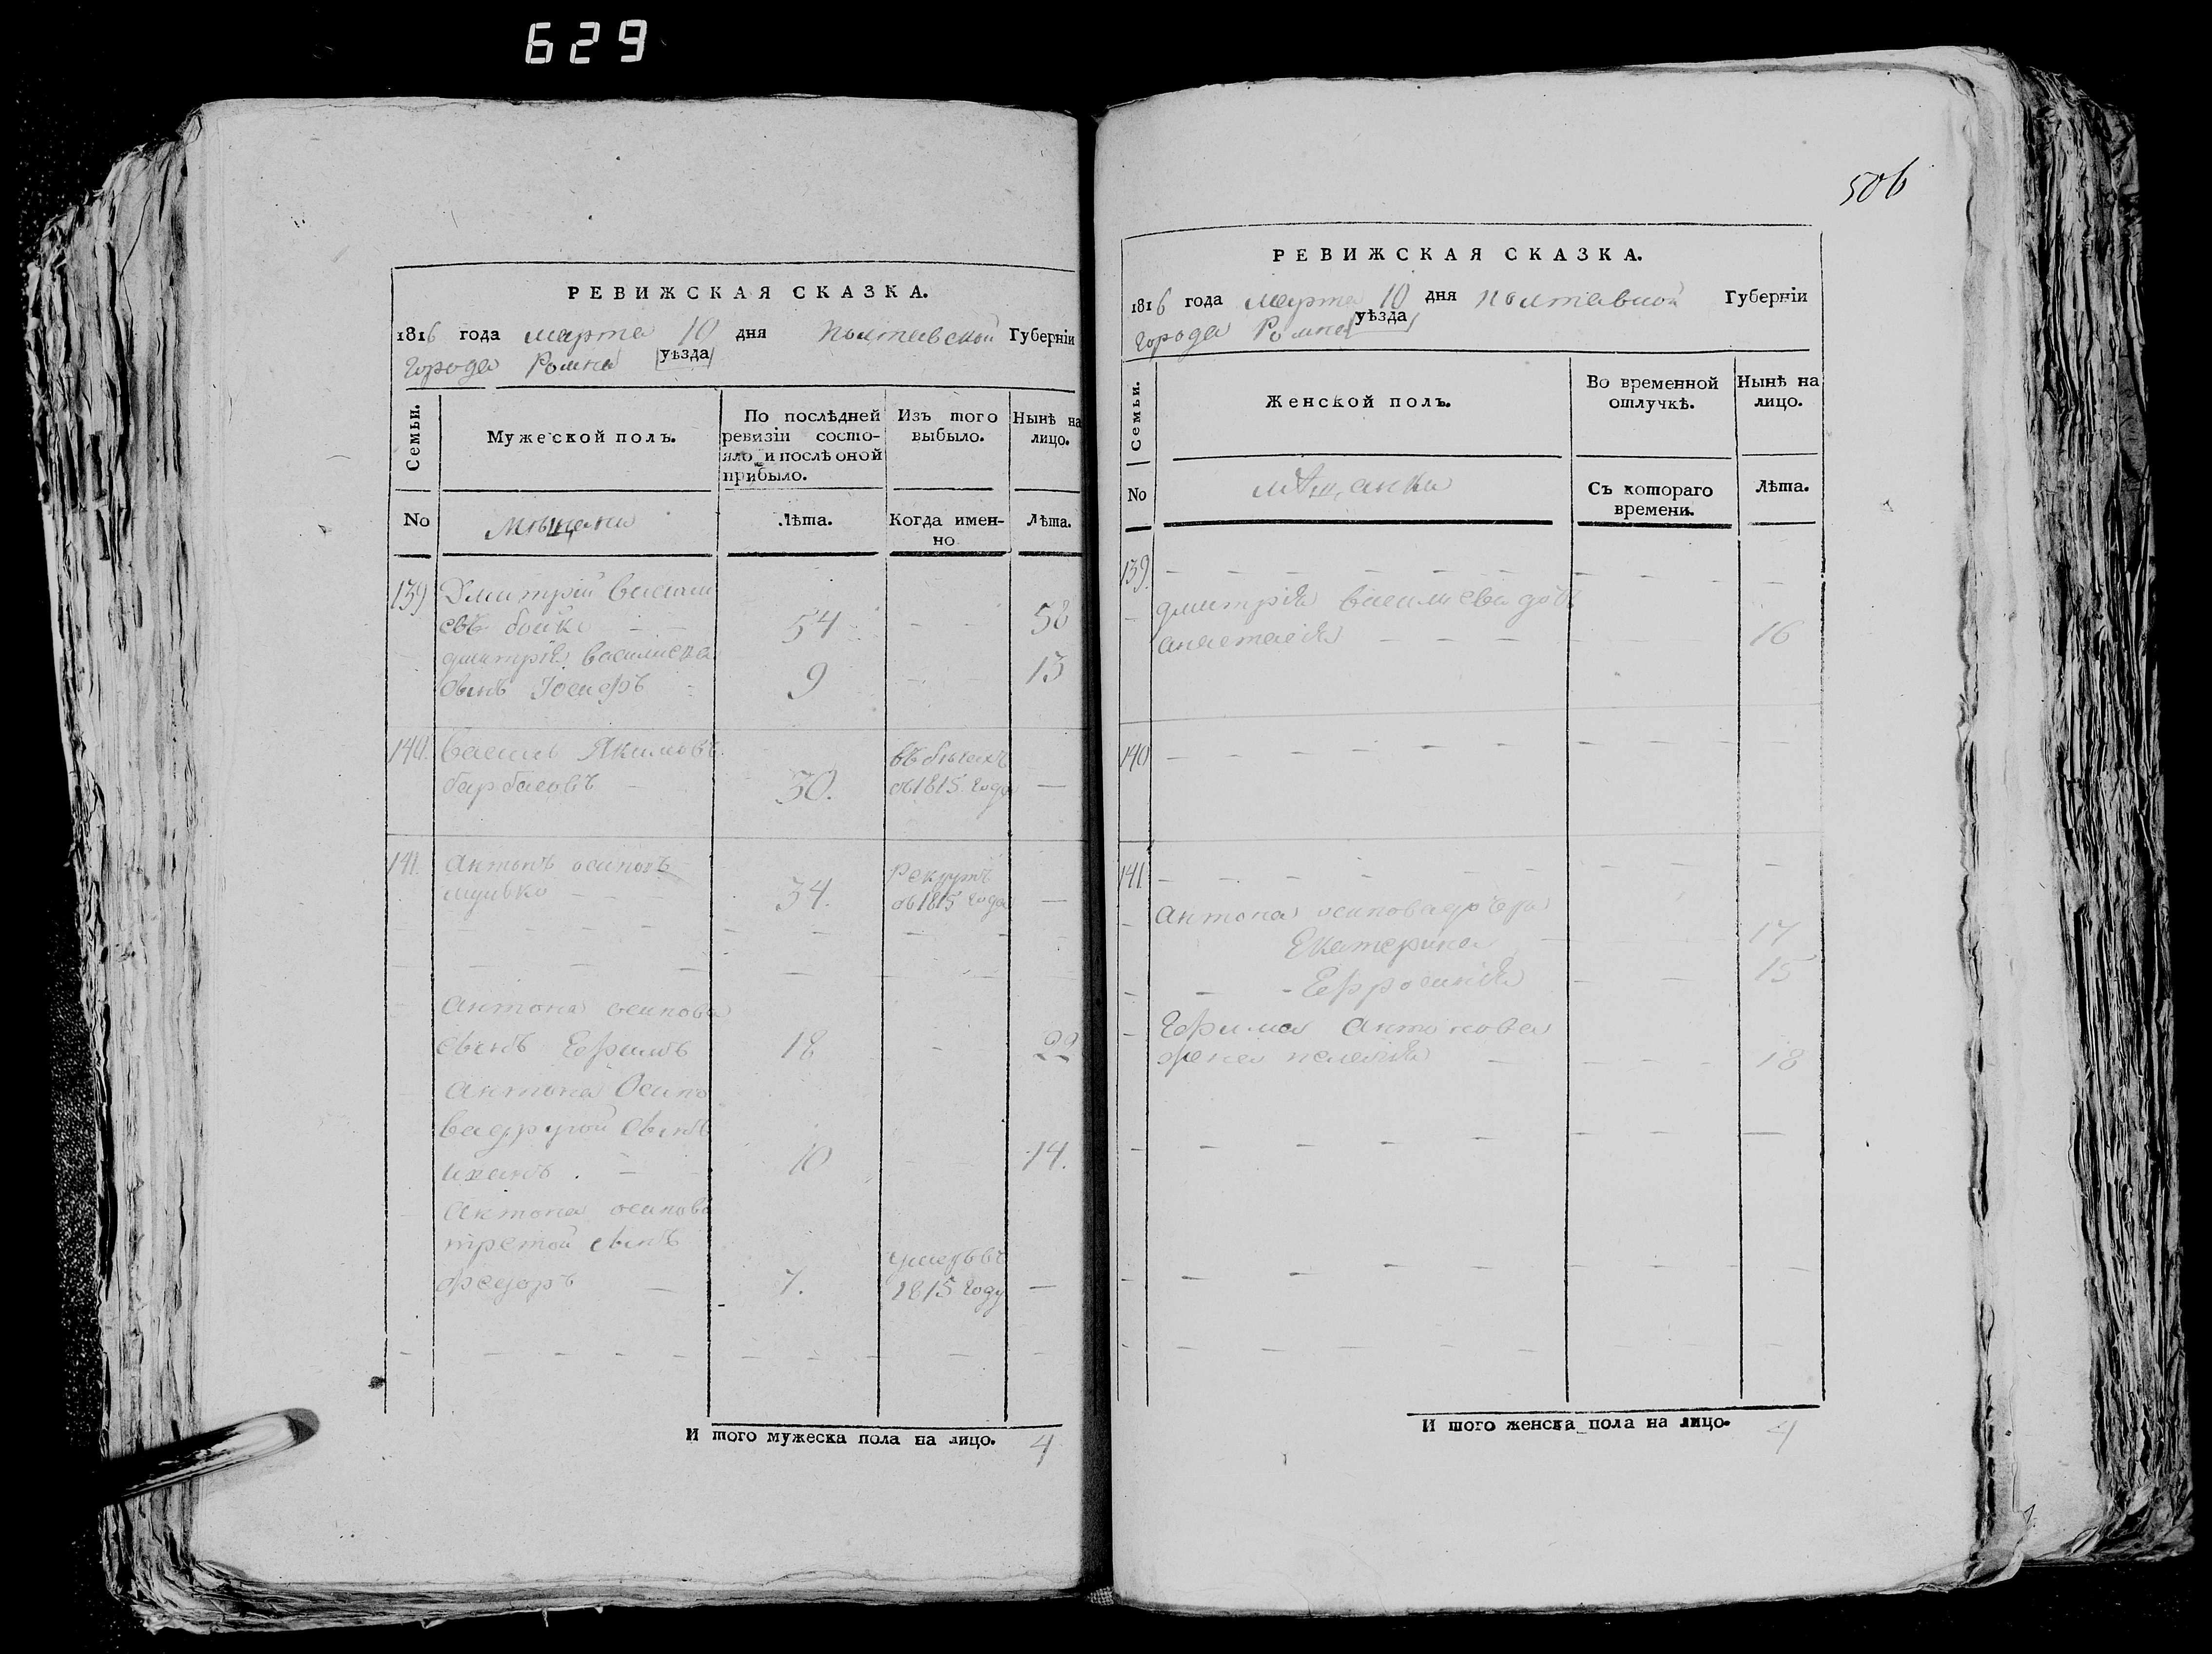 629
РЕВИЖСКАЯ СКАЗКА.
1816 года марта 10 дня Полтавской Губернїи
города Ромна уѣзда
Семьи.
Мужеской полъ.
По послѣдней ревизїи состояло и послѣ оной прибыло.
Изъ того выбыло.
Нынѣ на лицо.
No
мѣщани
Лѣта.
Когда именно
Лѣта.
139 Дмитрій васили
евъ бойко 54 58
дмитрія василиева
сынъ Іосифъ 9 13
140. василь Якимовъ въ бѣгахъ
барбасовъ 30. съ 1815 года —
141. антонъ осиповъ рекрутъ
34. съ 1815 года —
антона осипова
сынъ Ефимъ 18
антона Осипо
ва другой сынъ
иванъ 10 14.
антона осипова
третой сынъ умеръ въ
федоръ 7. 1815 году —
И того мужеска пола на лицо. 4
506
РЕВИЖСКАЯ СКАЗКА.
1816 года марта 10 дня полтавской Губернїи
города Ромна уѣзда
Семьи.
Женской полъ.
Во временной отлучкѣ.
Нынѣ на лицо.
No
мѣщанки
Съ котораго времени.
Лѣта.
139.
дмитрія василиева дочь
анастасія 16
140
141
антона осипова дочери
Екатерина 17
Ефросинія 15
Ефима антонова
жена пелагія 18
И того женска пола на лицо. 4